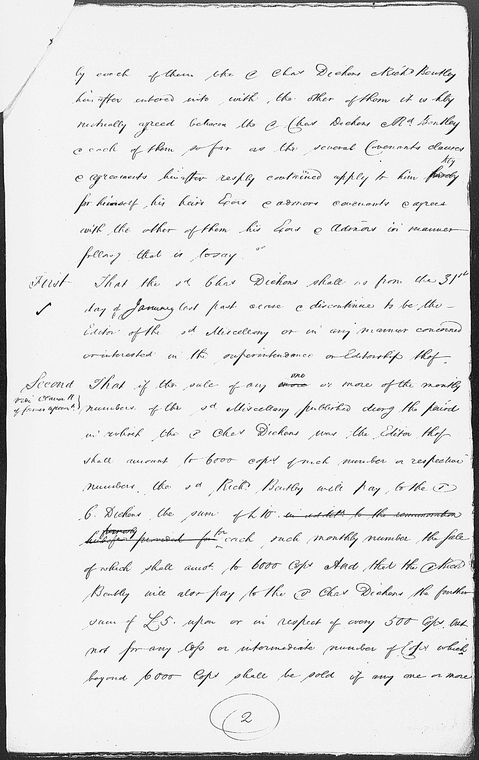 by each of them the sd Chas Dickens & Richd Bentley
hinafter entered into with the other of them it is hby
mutually agreed between the sd Chas Dickens & Rd Bentley
& each of them so far as the several Covenants clauses
& agreements hinafter resply contained apply to him hby
for himself his heirs Exors & admors covenants & agrees
with the other of them his Exors & Admors in manner
follows that is to say
First That the sd Chas Dickens shall as from the 31st
day of January last past cease & discontinue to be the
Editor of the sd Miscellany or in any manner concerned
or interested in the superintendence or Editorship thof
Second That if the sale of any one or more of the monthly
numbers of the sd Miscellany published during the period
in which the sd Chas Dickens was the Editor thof
shall amount to 6000 copies of such number or respective
numbers the sd Richd Bentley will pay to the sd
C. Dickens the sum of £10. in addon to the remuneration
provided for for each such monthly number the Sale
of which shall amot to 6000 Cops And that the sd Richd
Bentley will also pay to the sd Chas Dickens the further
sum of £5. upon or in respect of every 500 Cops but
not for any less or intermediate number of Cops which
beyond 6000 Cops shall be sold of any one or more
2